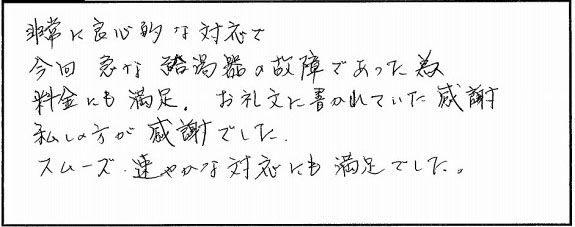 非常に良心的な対応で
今回 急な 給湯器の故障であった為
料金にも満足。お礼文に書かれていた感謝
私しの方が感謝でした。
スムーズ、速やかな対応にも満足でした。